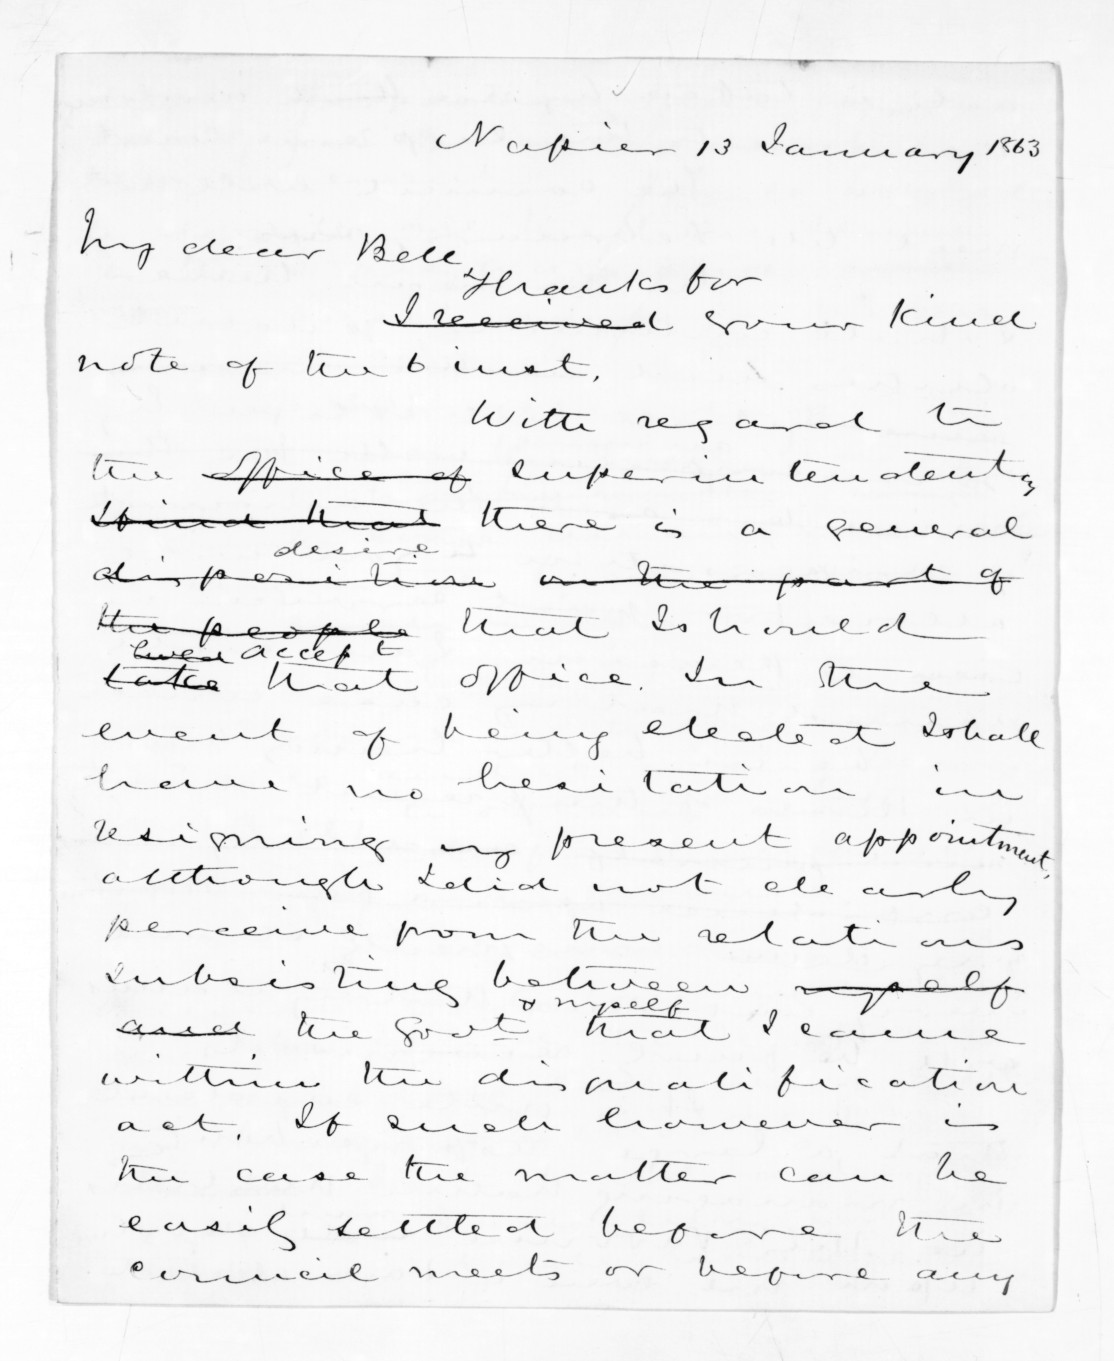 Napier 13 January 1863
My dear Bell,
Thanks for
I received your kind
note of the 6 inst.
With regard to
the office of superintendentcy
I find that there is a general
desire
disposition on the part of
the people that I should
accept
take that office. In the
event of being elected I shall
have no hesitation in
resigning my present appointment,
although I did not clearly
perceive from the relations
subsisting between myself
& myself
and the Govt that I came
within the disqualification
act. If such however is
the case the matter can be
easily settled before the
council meets or before any